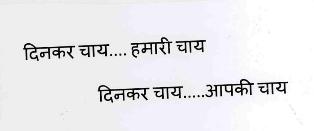 दिनकर चाय.... हमारी चाय
दिनकर चाय.....आपकी चाय